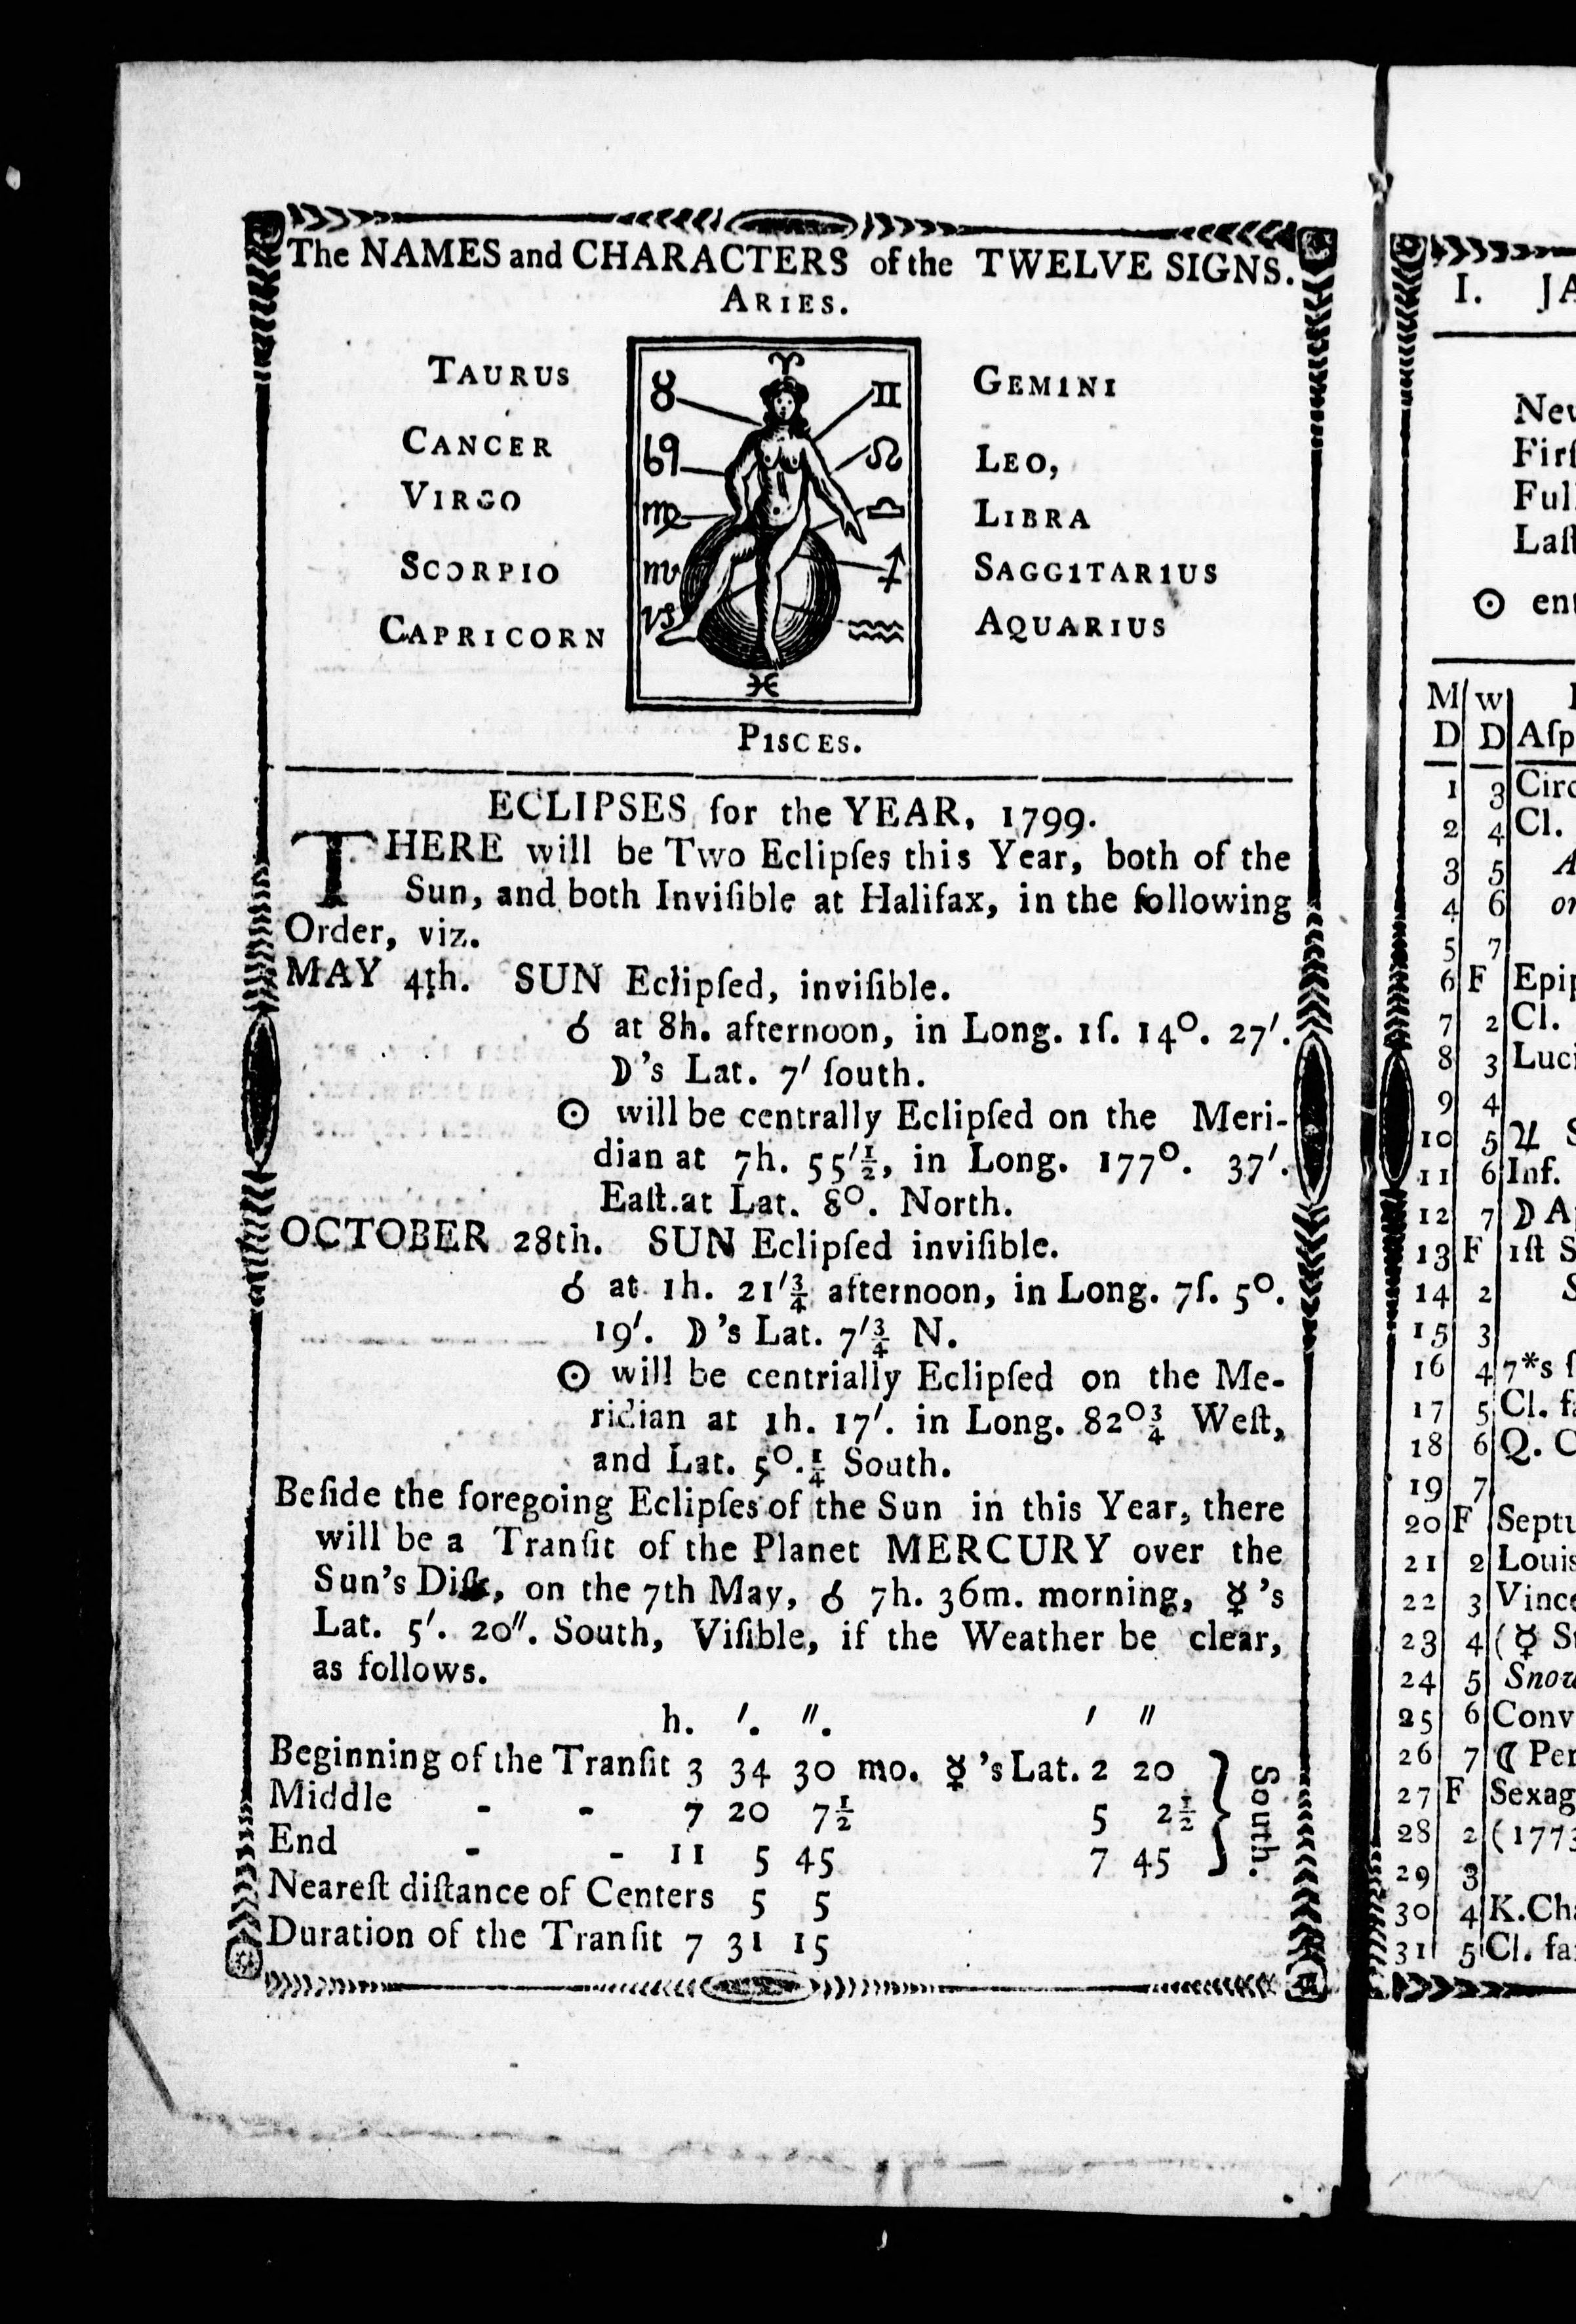 The NAMES and CHARACTERS of the TWELVE SIGNS.
ARIES.
TAURUS
CANCER
VIRGO
SCORPIO
CAPRICORN
♈
♉ ♊
♋ ♌
♍ ♎
♏ ♐
♑ ♒
♓
GEMINI
LEO,
LIBRA
SAGGITARIUS
AQUARIUS
PISCES.
ECLIPSES for the YEAR, 1799.
THERE will be Two Eclipſes this Year, both of the
Sun, and both Inviſible at Halifax, in the following
Order, viz.
MAY 4th. SUN Eclipſed, inviſible.
☌ at 8h. afternoon, in Long. 1ſ. 14°. 27′.
☽'s Lat. 7′ ſouth.
☉ will be centrally Eclipſed on the Meri-
dian at 7h. 55′½, in Long. 177°. 37′.
Eaſt.at Lat. 8°. North.
OCTOBER 28th. SUN Eclipſed inviſible.
☌ at 1h. 21′¾ afternoon, in Long. 7ſ. 5°.
19′. ☽'s Lat. 7′¾ N.
☉ will be centrially Eclipſed on the Me-
ridian at 1h. 17′. in Long. 82°¾ Weſt,
and Lat. 5°.¼ South.
Beſide the foregoing Eclipſes of the Sun in this Year, there
will be a Tranſit of the Planet MERCURY over the
Sun's Diſk, on the 7th May, ☌ 7h. 36m. morning, ☿'s
Lat. 5′. 20″. South, Viſible, if the Weather be clear,
as follows.
h. ′. ″. ′ ″
Beginning of the Tranſit 3 34 30 mo. ☿'s Lat. 2 20
Middle - - 7 20 7½ 5 2½
End - - 11 5 45 7 45
South.
Neareſt diſtance of Centers 5 5
Duration of the Tranſit 7 31 15
I. JA
☉ ent
M W
D D Aſp
1 3 Circ
2 4 Cl.
3 5 A
4 6 or
5 7
6 F Epip
7 2 Cl.
8 3 Luci
9 4
10 5 ♃ S
11 6 Inf.
12 7 ☽ A
13 F 1ſt S
14 2 S
15 3
16 4 7*s ſ
17 5 Cl. fa
18 6 Q. C
19 7
20 F Septu
21 2 Louis
22 3 Vince
23 4 (☿ St
24 5 Snow
25 6 Conv
26 7 ☾ Per
27 F Sexag
28 2 (1773
29 3
30 4 K.Cha
31 5 Cl. fa